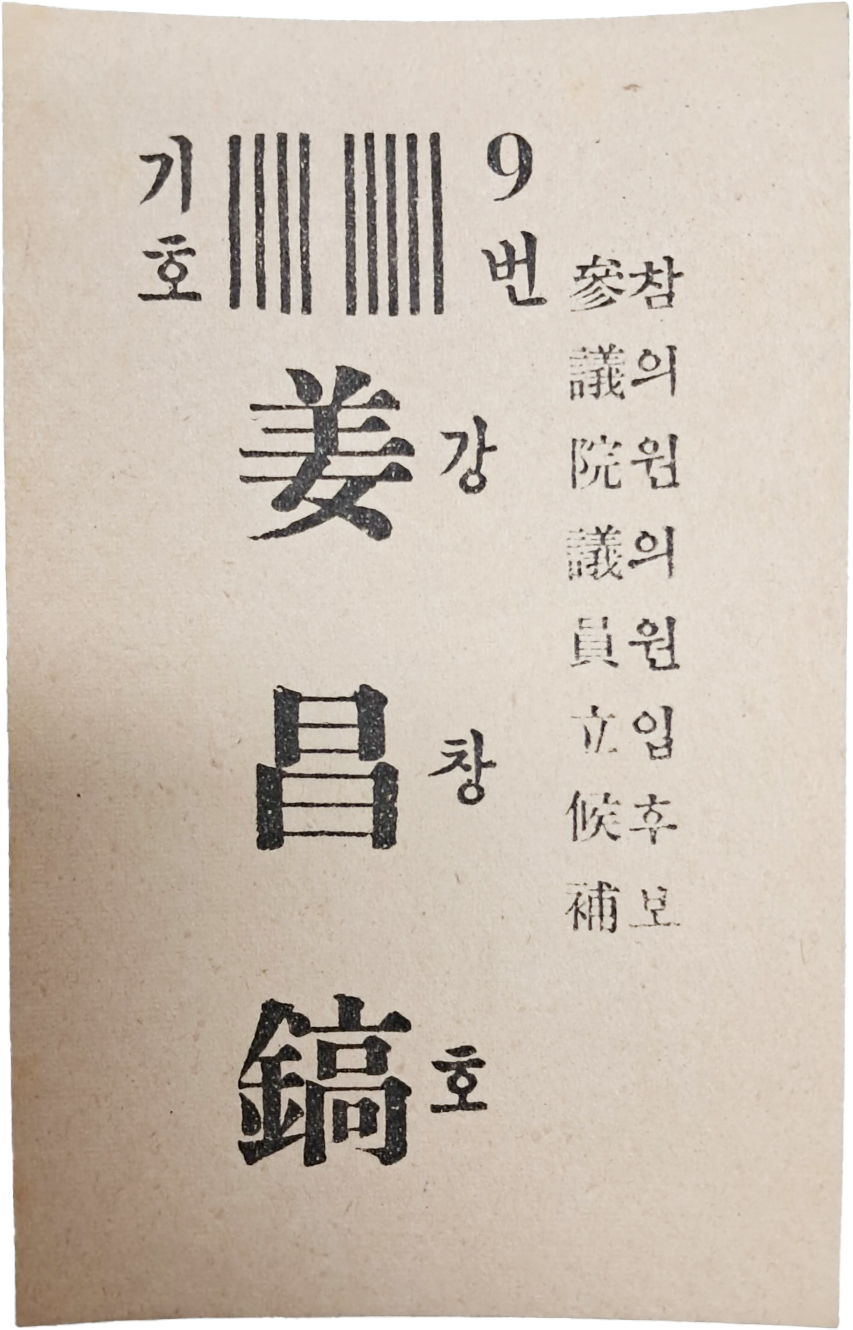 기호 ||||||||| 9번
參議院議員立候補
참의원의원입후보
姜昌鎬
강창호